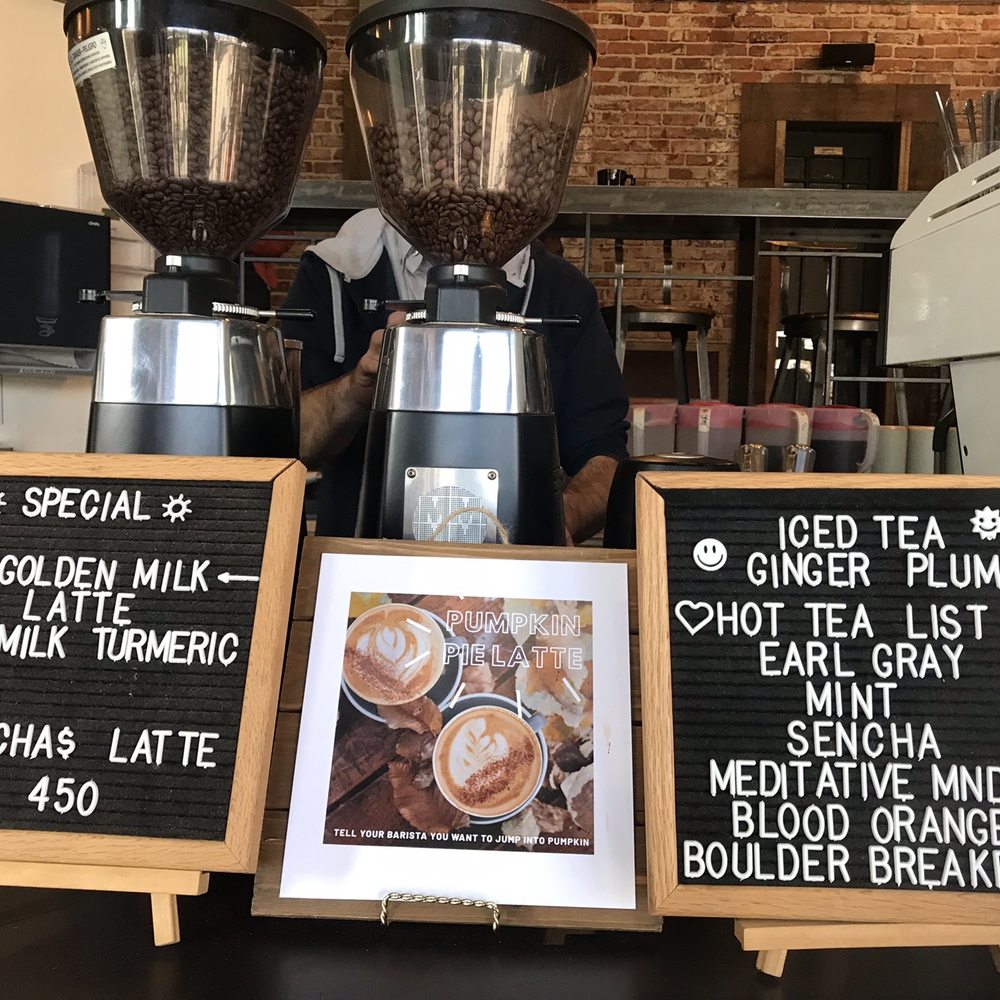 SPECIAL
GOLDEN MILK
LATTE
MILK TURMERIC
CHA$ LATTE
450
PUMPKIN
PIE LATTE
TELL YOUR BARISTA YOU WANT TO JUMP INTO PUMPKIN
ICED TEA
GINGER PLUM
HOT TEA LIST
EARL GRAY
MINT
SENCHA
MEDITATIVE MND
BLOOD ORANGE
BOULDER BREAKF